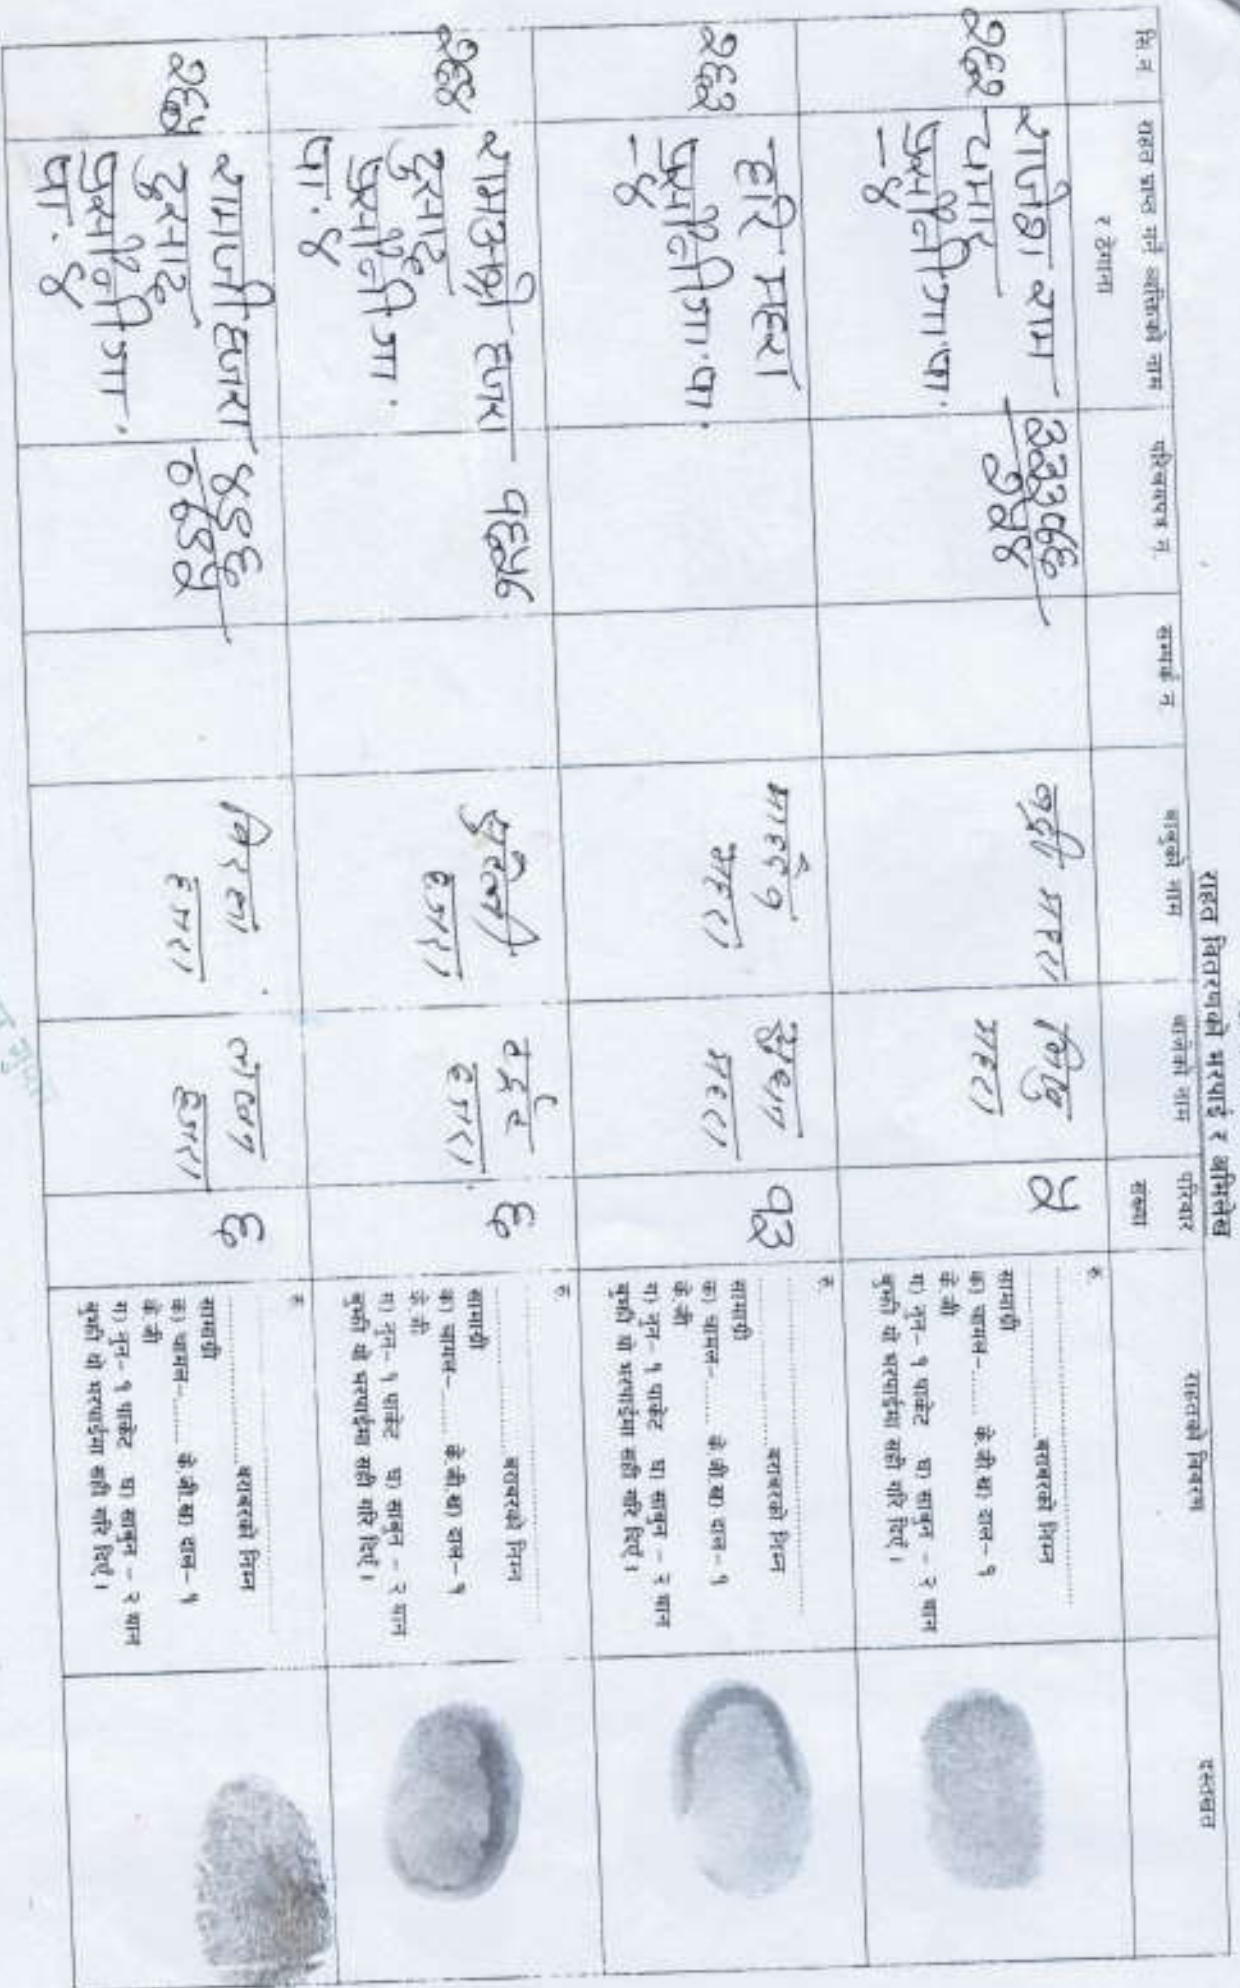 राहत वितरणको भरपाई र अभिलेख
सि.नं.
राहत प्राप्त गर्ने व्यक्तिको नाम
र ठेगाना
परिचयपत्र नं.
सम्पर्क नं
बाबुको नाम
बाजेको नाम
परिवार
संख्या
राहतको विवरण
दस्तखत
२६२
राजेश राम
चमार
प्रसौनी गा.पा.
-४
३३३७६
२५४
बद्री महरा
महरा
५
रु.
बराबरको निम्न
सामाग्री
क) चामल-....... के.जी.ख) दाल- १
के.जी
ग) नुन- १ पाकेट घ) साबुन - २ थान
बुझी यो भरपाईमा सही गरि दिएँ ।
२६३
हरि महरा
प्रसौनी गा.पा.
-४
महरा
महरा
१३
रु.
बराबरको निम्न
सामाग्री
क) चामल-....... के.जी.ख) दाल- १
के.जी
ग) नुन- १ पाकेट घ) साबुन - २ थान
बुझी यो भरपाईमा सही गरि दिएँ ।
२६४
हजरा
दुसाद
प्रसौनी गा.
पा. ४
१६५८
हजरा
हजरा
६
रु.
बराबरको निम्न
सामाग्री
क) चामल-....... के.जी.ख) दाल- १
के.जी
ग) नुन- १ पाकेट घ) साबुन - २ थान
बुझी यो भरपाईमा सही गरि दिएँ ।
२६५
रामजी हजरा
दुसाद
प्रसौनी गा.
पा. ४
४९६
०६९५
हजरा
हजरा
६
बराबरको निम्न
सामाग्री
क) चामल-....... के.जी.ख) दाल- १
के.जी
ग) नुन- १ पाकेट घ) साबुन - २ थान
बुझी यो भरपाईमा सही गरि दिएँ ।